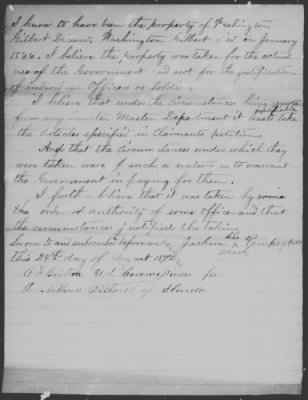 I know to have been the property of Washington
Gilbert Deceased, Washington Gilbert died in January
1866. I believe the property was taken for the actual
use of the Government and not for the gratification
of individual Officer or Soldier
I believe that under the circumstances being
from any Quarter Master Department it would take
the articles specified in Claimants petition.
And that the Circumstances under which they
were taken were of such a nature as to warrant
the Government in paying for them.
I further believe that it was taken by
the order or authority of some officer and that
the circumstances justified the taking
his
Sworn to and subscribed before me Jackson X
mark
this 28th day of August
U.S. Commissioner for
Northern District of Florida